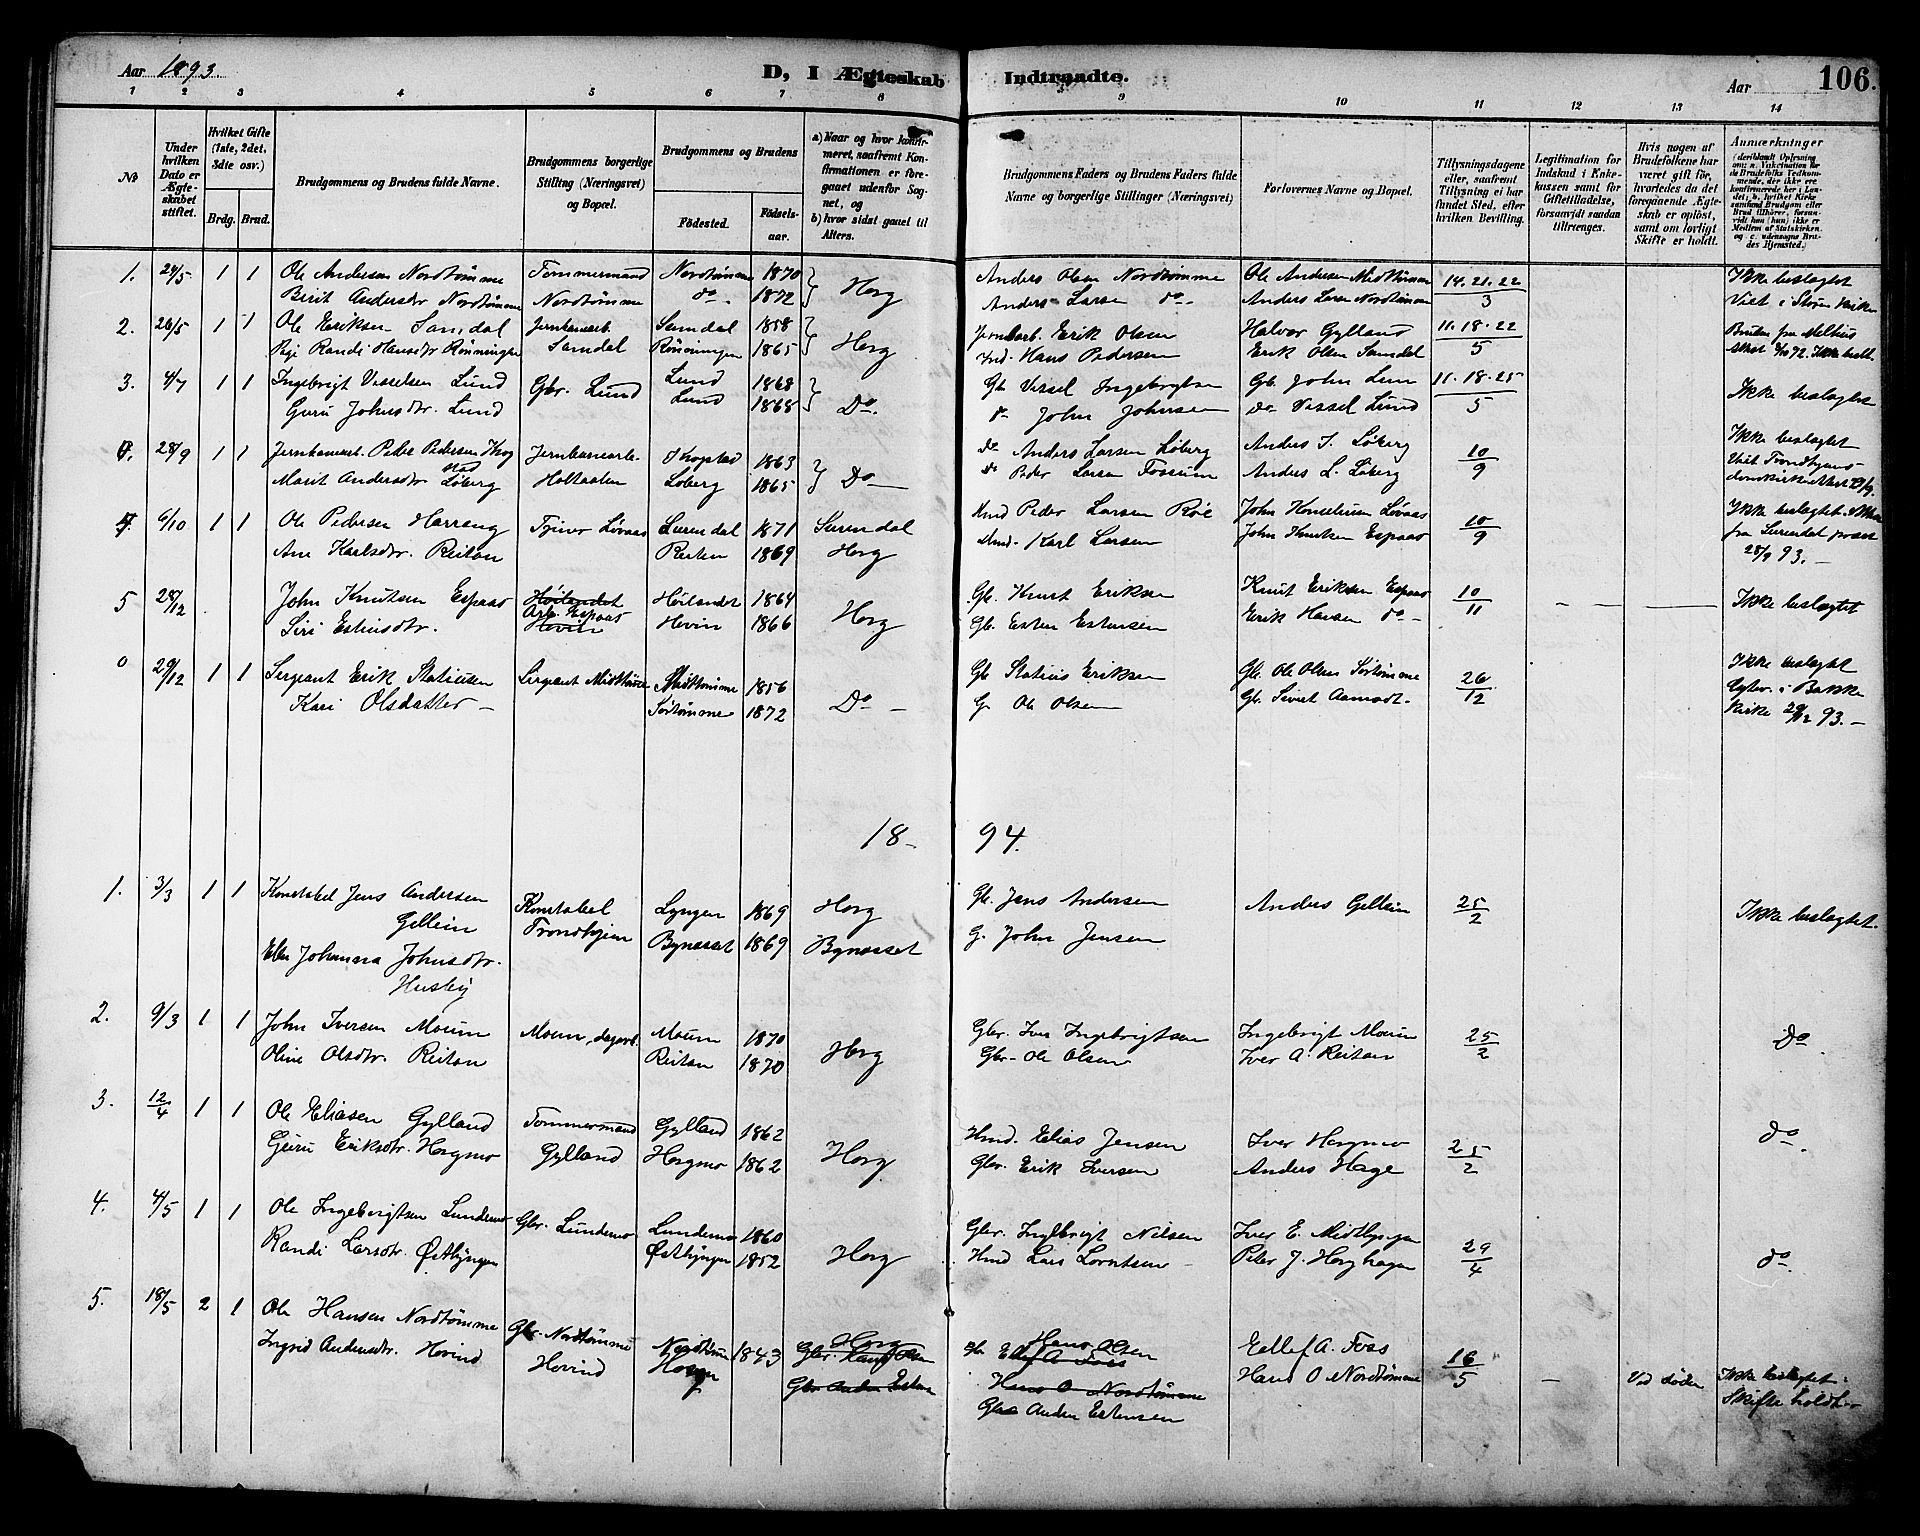 Aar 1893.
D, I Ægteskab Indtraadte.
Aar 106.
1 2 3 4 5 6 7 8 9 10 11 12 13 14
No
Under hvilken Dato er Ægteskabet stiftet.
Hvilket Gifte (1ste, 2det, 3die osv.)
Brdg. Brud.
Brudgommens og Brudens fulde Navne.
Brudgommens borgerlige Stilling (Næringsvei) og Bopæl.
Brudgommens og Brudens
Fødested. Fødselsaar.
a) Naar og hvor konfirmeret, saafremt Konfirmationen er foregaaet udenfor Sognet, og
b) hvor sidst gaaet til Alters.
Brudgommens Faders og Brudens Faders fulde Navne og borgerlige Stillinger (Næringsvei)
Forlovernes Navne og Bopæl.
Tillysningsdagene eller, saafremt Tillysning ei har fundet Sted, efter hvilken Bevilling.
Legitimation for Indskud i Enkekassen samt for Giftetilladelse, forsaavidt saadan tiltrænges.
Hvis nogen af Brudefolkene har været gift før, hvorledes da det foregaaende Ægteskab er opløst, samt om lovligt Skifte er holdt.
Anmærkninger
1. 24/5 1 1 Ole Andersen Nordtømme Tømmermand Nordtømme 1870 Horg Anders Olsen Nordtømme Ole Andersen Midttømme 14.21.22/3 Ikke beslægtet
Berit Andersdtr Nordtømme Nordtømme do 1872 Anders Larsen do Anders Larsen Nordtømme Viet i Støren Kirke
2. 26/5 1 1 Ole Eriksen Samdal Jernbanearb. Samdal 1858 Horg Jernbarb. Erik Olsen Halvor Gylland 11.18.22/5
Pige Randi Hansdtr Rønningen Samdal Rønningen 1865 Ind. Hans Pedersen Erik Olsen Samdal
3. 4/7 1 1 Ingebrigt Vesselsen Lund Gbr. Lund Lund 1868 Do. Gb Vessel Ingebrigtsen Gb. John Lun 11.18.25/5 Ikke beslægtet
Guru Johnsdtr. Lund Lund 1868 do John Johnsen do Vessel Lund
28/9 1 1 Jernbanearb. Peder Pedersen Krogstad Jernbanearb. Krogstad 1863 Do do Anders Larsen Løberg Anders I. Løberg 10/9 Ikke beslægtet
Marit Andersdtr Løberg Holtaalen Løberg 1865 do Peder Larsen Fossum Anders L. Løberg Viet Trondhjems Domkirke
6/10 1 1 Ole Pedersen Harrang Tjener Løvaas Surendal 1871 Surendal Hmd Peder Larsen Røe John Kornelius Løvaas 10/9 Ikke beslægtet
Ane Karlsdtr. Reitan Reiten 1869 Horg Hmd. Karl Larsen John Knutsen Espaas fra Surendal 28/9 93.
5 28/12 John Knutsen Espaas Høilandet Arb. Espaas Høilandet 1864 Horg Gb. Knut Eriksen Knut Eriksen Espaas 10/11 — — — Ikke beslægtet
Siri Estensdtr. Hevin Hevin 1866 Gb. Esten Estensen Erik Hansen do
0 29/12 1 1 Sergeant Erik Statiusen Sergeant Midttømme Midttømme 1856 Do Gb Statius Eriksen Gb. Ole Olsen Sørtømme 26/12 Ikke beslægtet
Kari Olsdatter — Sørtømme 1872 G. Ole Olsen Gb. Sivert Aamodt. i Bakke Kirke 29/12 93.—
18 94.
1. 3/3 1 1 Konstabel Jens Andersen Gellein Konstabel Lyngen 1869 Horg Gb. Jens Andersen Anders Gellein 25/2 Ikke beslægtet.
Ellen Johanna Johnsdtr. Husby Trondhjem Bynæsset 1869 Bynæsset G. John Jensen
2. 9/3 1 1 John Iversen Moum Moum, dagarb. Moum 1870 Horg Gbr. Iver Ingebrigtsen Ingebrigt Moum 25/2 Do
Oline Olsdtr. Reitan Reitan 1870 Gbr. Ole Olsen Iver A. Reitan
3. 12/4 1 1 Ole Eliasen Gylland Tømmermand Gylland 1862 Horg Hmd. Elias Jensen Iver Horgmo 25/2 do
Guru Eriksdtr. Horgmo Gylland Horgmo 1862 Gbr. Erik Iversen Anders Hage
4. 4/5 1 1 Ole Ingebrigtsen Lundemo Gbr. Lundemo Lundemo 1860 Horg Gbr. Ingebrigt Nilsen Iver E. Midtlyngen 29/4 do
Randi Larsdtr. Østlyngen Østlyngen 1852 Hmd Lars Lorntsen Peter J. Horghagen
5. 18/5 2 1 Ole Hansen Nordtømme Gbr. Nordtømme Nordtømme 1843 Horg Hans Olsen Eellef A. Foss 16/5 — Ved døden Ikke beslægtet.
Ingrid Andersdtr. Hovind Hovind Horg Gbr. Hans Olsen Ellef A Foss Hans O Nordtømme Skifte holdt
Gbr Anders Estens Hans O Nordtømme
Gbr Anders Estensen